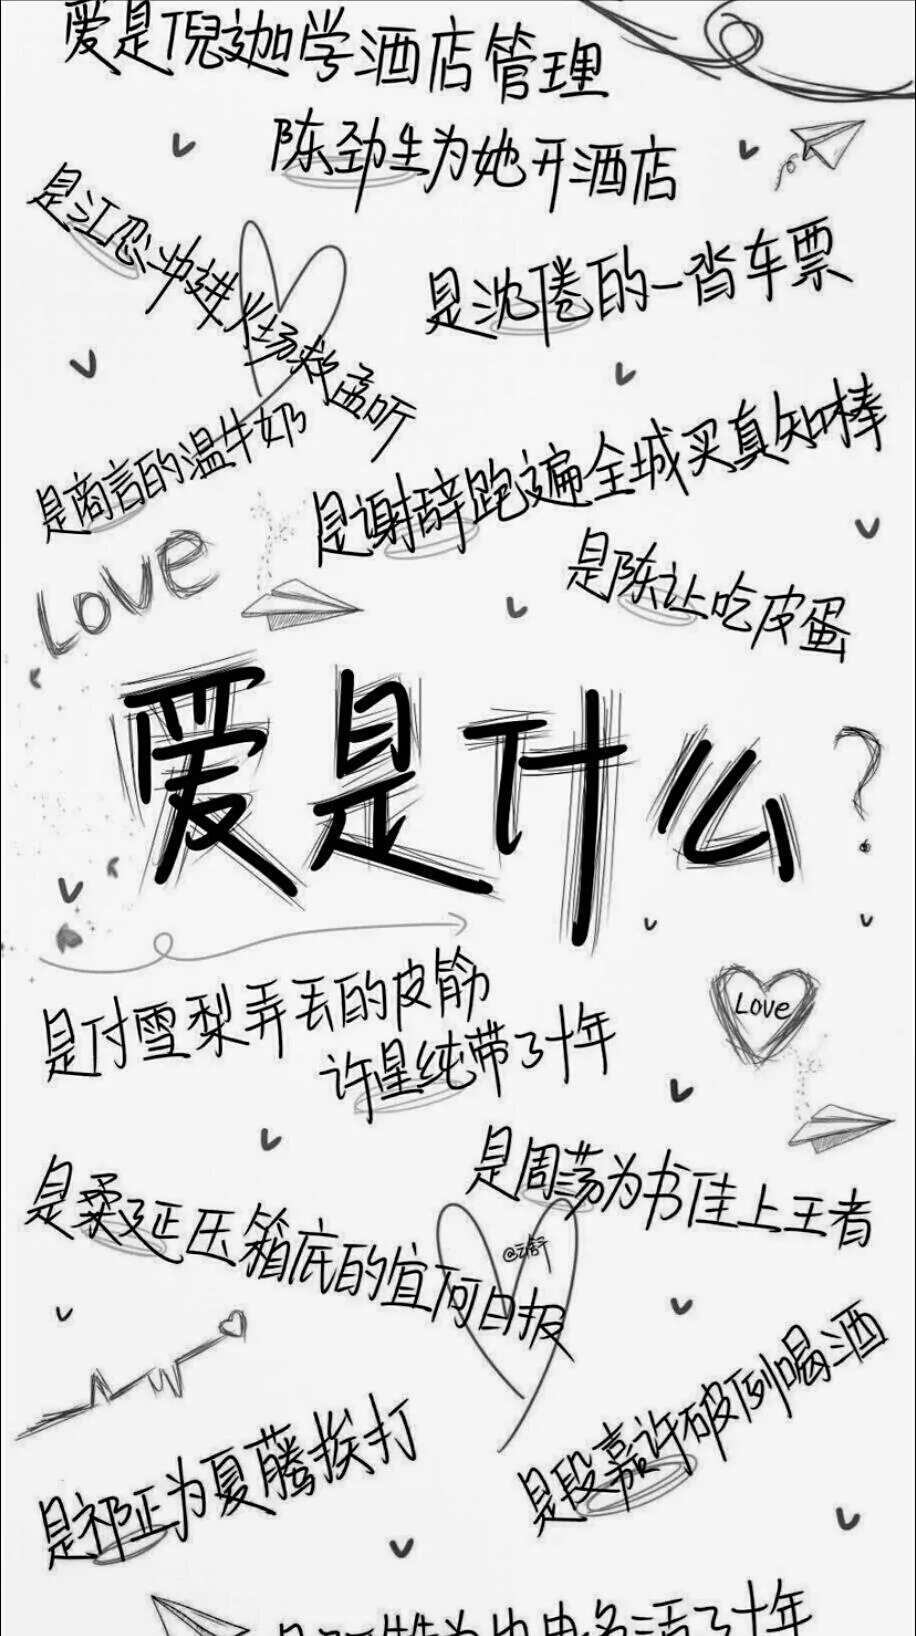 爱是倪迦学酒店管理
陈劲生为她开酒店
是江忍冲进火场救孟听
是沈倦的一沓车票
是商言的温牛奶
是谢辞跑遍全城买真知棒
是陈让吃皮蛋
LOVE
爱是什么?
是付雪梨弄丢的皮筋
许星纯带了十年
Love
是周荡为书佳上王者
是柔延压箱底的宜河日报
是段嘉许破例喝酒
是祁正为夏藤挨打
活了十年